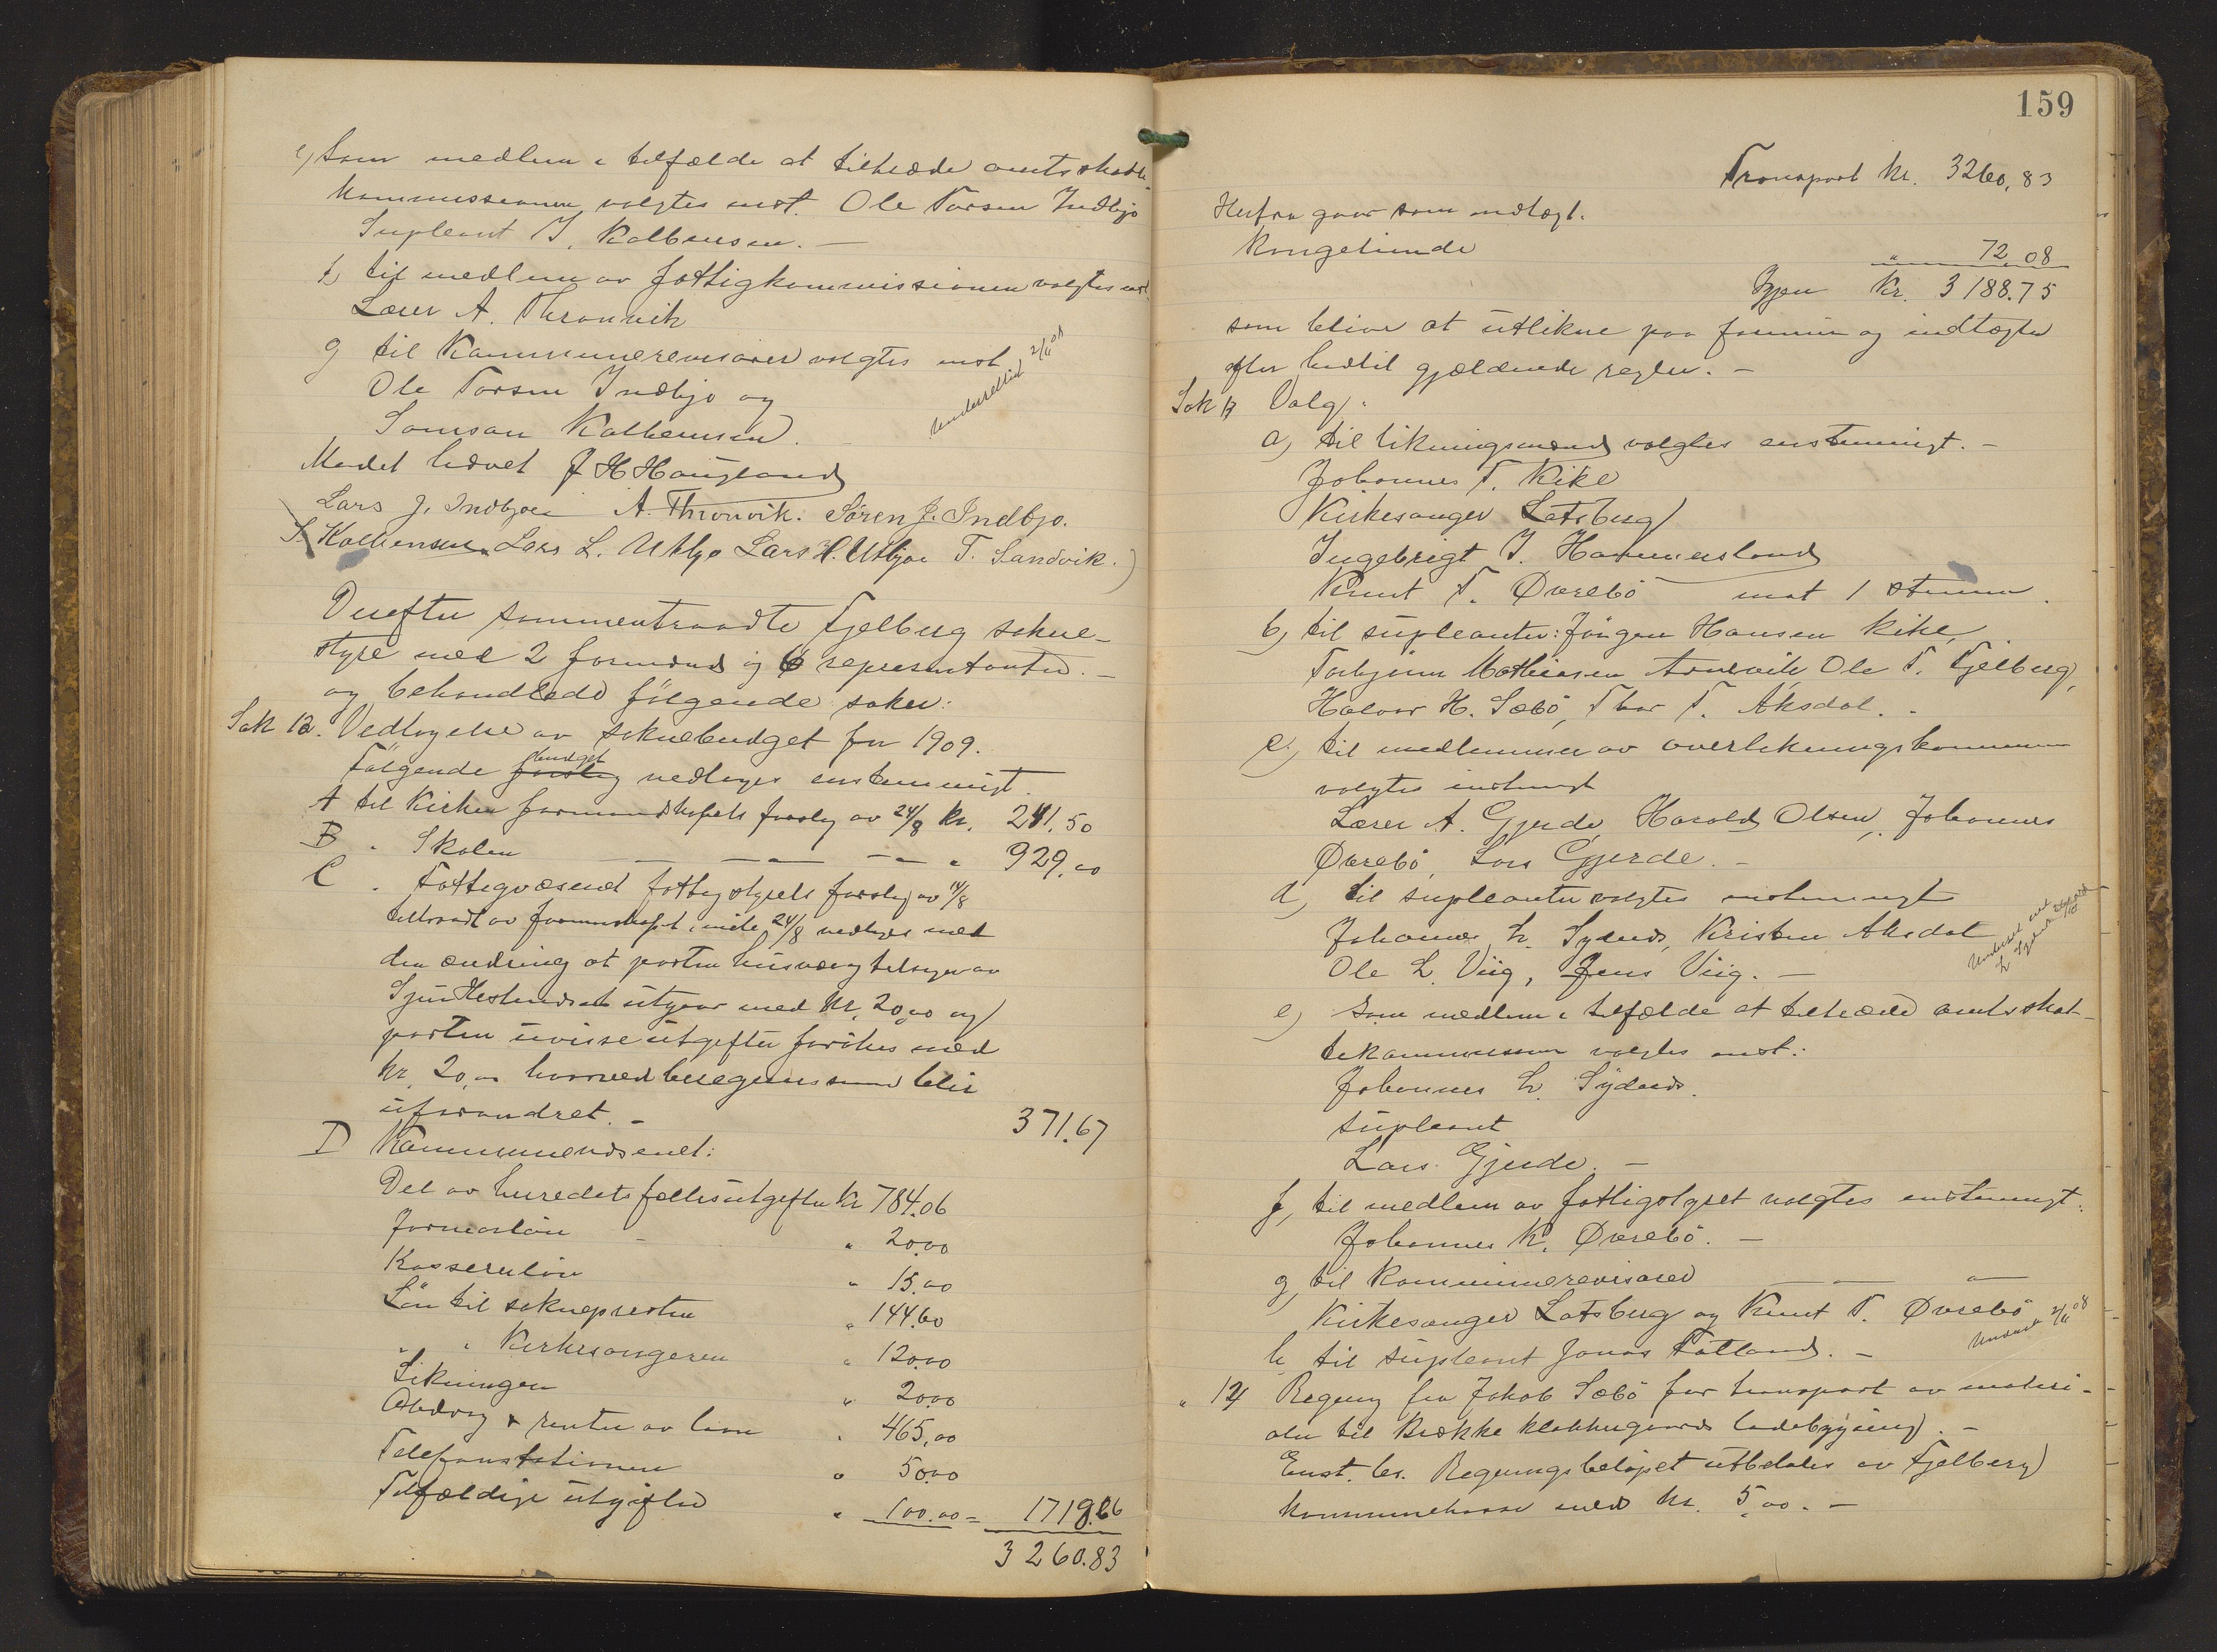 e) Som medlem i tilfælde at tiltræde amtsskatte-
kommissionen valgtes enst. Ole Torsen Indbjo
Supleant S. Kolbensen. —
f) til medlem av fattigkommissionen valgtes enst.
Lærer A. Thronvik
g til Kommunerevisorer valgtes enst.
Ole Torsen Indbjo og
Samson Kolbensen.
Underrettet 2/11 08
Mødet hævet J H Haugland
Lars J. Indbjoe A. Thronvik. Søren J. Indbjo.
S. Kolbensen Lars L. Utbjo Lars H. Utbjoe T. Sandvik.)
Derefter sammentraadte Fjelberg sokne-
styre med 2 formænd og 6 representanter. —
og behandlede følgende saker:
Sak 12. Vedtagelse av soknebudget for 1909.
budget
Følgende forslag vedtages enstemmigt.
A til Kirken formandskapets forslag av 24/8 Kr. 241,50
B " Skolen — — — — " 929,00
C " Fattigvæsenet fattigstyrets forslag av 14/8
tiltraadt av formandskapet i møte 24/8 vedtages med
den ændring at posten husvær og tilsyn av
utgaar med kr. 20,00 og
posten uvisse utgifter forøkes med
kr. 20,00 hvorved beregningssum blir
uforandret. — 371.67
D Kommunevæsenet:
Del av herredets fællesutgifter Kr 784.06
Formandsløn " 20.00
Kassererløn " 15.00
Løn til soknepresten " 144.60
" " Kirkesangeren " 120.00
Likningen " 20.00
Avdrag & renter av laan " 465,00
Telefonstationen " 50.00
Tilfældige utgifter " 100.00 = 1718.66
3260.83
159
Transport kr. 3260,83
Herfra gaar som indtægt.
Kongetiende " 72,08
Igjen Kr. 3188.75
som bliver at utlikne paa formue og indtægter
efter hertil gjældende regler. —
Sak 13 Valg:
a) til likningsmænd valgtes enstemmigt. —
Johannes T. Kike
Kirkesanger Latsberg
Ingebrigt J. Hammersland
Knut T. Øvrebö mot 1 stemme.
b) til supleanter: Jørgen Hansen Kike,
Torbjørn Mathiasen Arnevik, Ole T. Fjelberg,
Halvor H. Sæbö, Thor T. Aksdal. -
c) til medlemmer av overlikningskommissionen
valgtes enstemmigt
Lærer A. Gjerde, Harald Olsen, Johannes
Øvrebö, Lars Gjerde. —
d) til supleanter valgtes enstemmigt
Johannes L. Sydnes, Kristen Aksdal
Ole L. Viig, Jens Viig. —
e) Som medlem i tilfælde at tiltræde amtsskat-
tekommissionen valgtes enst:
Johannes L. Sydnes.
supleant
Lars Gjerde. —
f, til medlem av fattigstyret valgtes enstemmigt.
Johannes K. Øvrebö. —
g, til kommunerevisorer — — —
Kirkesanger Latsberg og Knut T. Øvrebö
2/11 08
h til supleant Jonas Fatland. —
" 14 Regning fra Jakob Sæbö for transport av materi-
aler til Brække klokkergaards ladebygning. —
Enst. bes. Regningsbeløpet utbetales av Fjelberg
kommunekasse med kr. 5,00. —